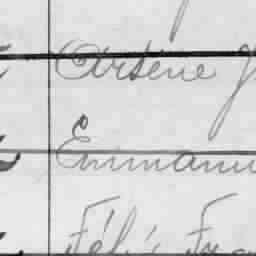 Arsène J
Emmanu
Féli Fra